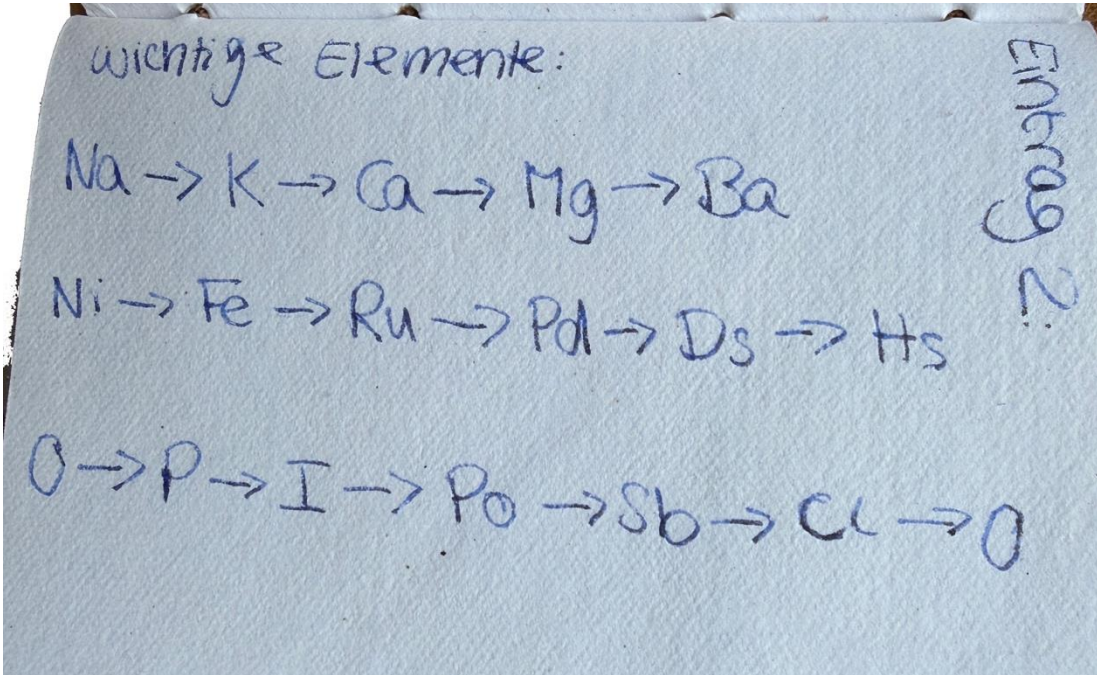 wichtige Elemente:
Na → K → Ca → Mg → Ba
Ni → Fe → Ru → Pd → Ds → Hs
O → P → I → Po → Sb → Cl → O
Eintrag 2: